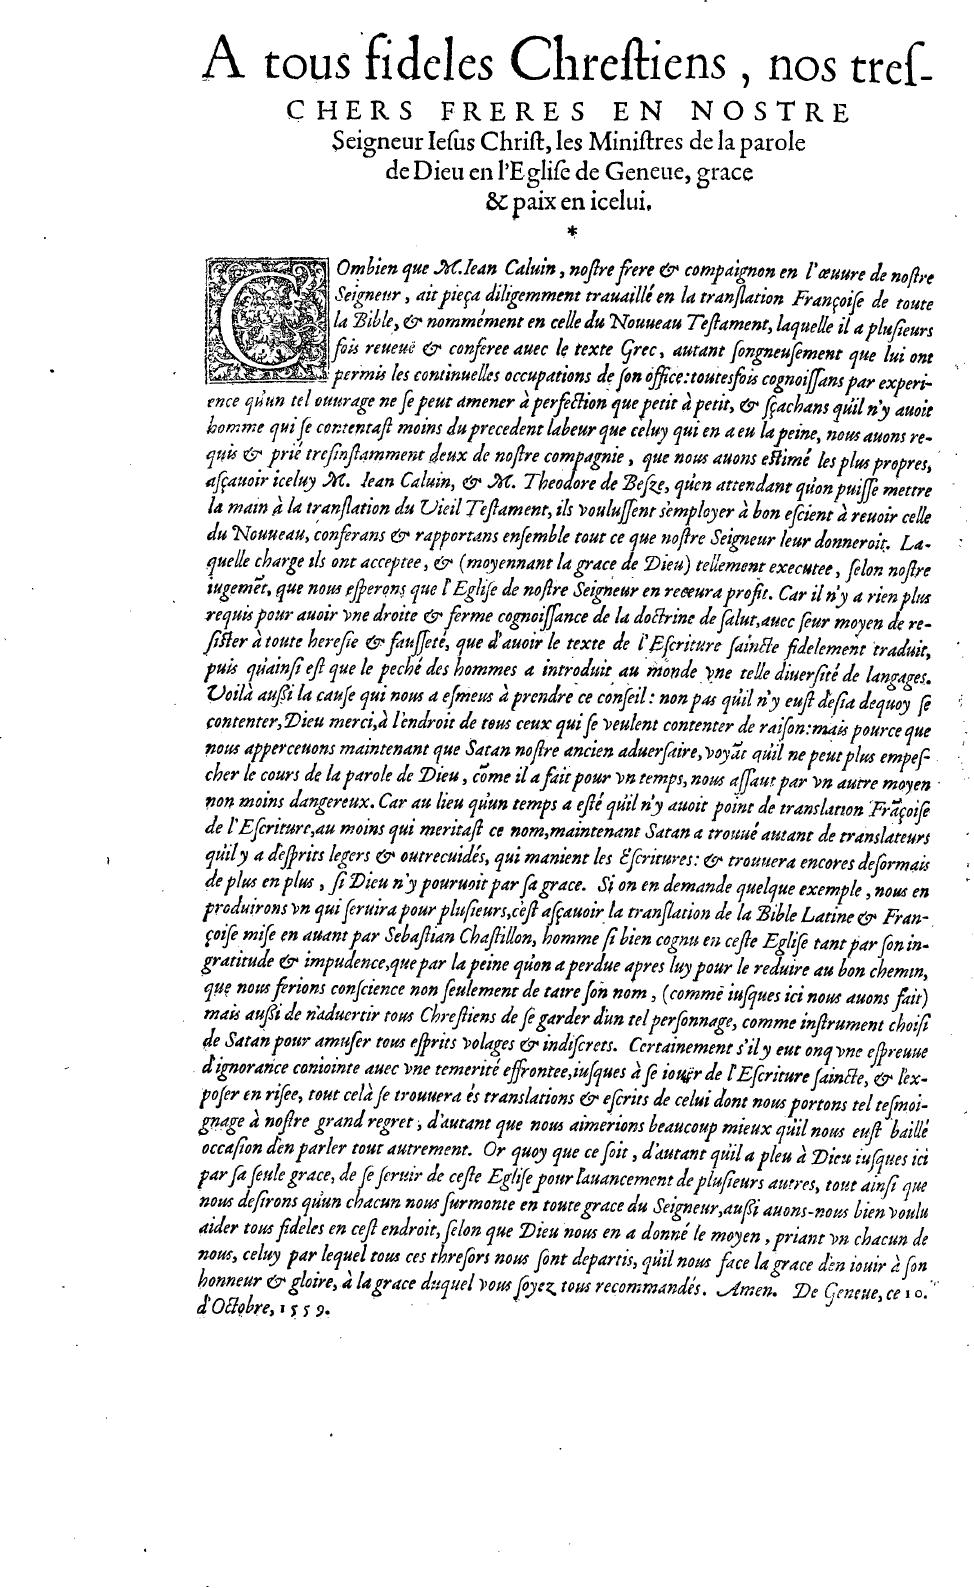 A tous fideles Chreſtiens, nos treſ-
CHERS FRERES EN NOSTRE
Seigneur Ieſus Chriſt, les Miniſtres de la parole
de Dieu en l'Egliſe de Geneue, grace
& paix en icelui.
*
COmbien que M. Iean Caluin, noſtre frere & compaignon en l'œuure de noſtre
Seigneur, ait pieça diligemment trauaillé en la tranſlation Françoiſe de toute
la Bible, & nommément en celle du Nouueau Teſtament, laquelle il a pluſieurs
fois reueuë & conferee auec le texte Grec, autant ſongneuſement que lui ont
permis les continuelles occupations de ſon office: toutesfois cognoiſſans par experi-
ence qu'un tel ouurage ne ſe peut amener à perfection que petit à petit, & ſçachans qu'il n'y auoit
homme qui ſe contentaſt moins du precedent labeur que celuy qui en a eu la peine, nous auons re-
quis & prié treſinſtamment deux de noſtre compagnie, que nous auons eſtimé les plus propres,
aſçauoir iceluy M. Iean Caluin, & M. Theodore de Beſze, qu'en attendant qu'on puiſſe mettre
la main à la tranſlation du Vieil Teſtament, ils vouluſſent s'employer à bon eſcient à reuoir celle
du Nouueau, conferans & rapportans enſemble tout ce que noſtre Seigneur leur donneroit. La-
quelle charge ils ont acceptee, & (moyennant la grace de Dieu) tellement executee, ſelon noſtre
iugemēt, que nous eſperons que l'Egliſe de noſtre Seigneur en receura profit. Car il n'y a rien plus
requis pour auoir vne droite & ferme cognoiſſance de la doctrine de ſalut, auec ſeur moyen de re-
ſiſter à toute hereſie & fauſſeté, que d'auoir le texte de l'Eſcriture ſaincte fidelement traduit,
puis qu'ainſi eſt que le peché des hommes a introduit au monde vne telle diuerſité de langages.
Voilà auſſi la cauſe qui nous a eſmeus à prendre ce conſeil: non pas qu'il n'y euſt deſia dequoy ſe
contenter, Dieu merci, à l'endroit de tous ceux qui ſe veulent contenter de raiſon: mais pource que
nous apperceuons maintenant que Satan noſtre ancien aduerſaire, voyāt qu'il ne peut plus empeſ-
cher le cours de la parole de Dieu, cōme il a fait pour vn temps, nous aſſaut par vn autre moyen
non moins dangereux. Car au lieu qu'un temps a eſté qu'il n'y auoit point de translation Frāçoiſe
de l'Eſcriture, au moins qui meritaſt ce nom, maintenant Satan a trouué autant de translateurs
qu'il y a d'eſprits legers & outrecuidés, qui manient les Eſcritures: & trouuera encores deſormais
de plus en plus, ſi Dieu n'y pouruoit par ſa grace. Si on en demande quelque exemple, nous en
produirons vn qui ſeruira pour pluſieurs, c'eſt aſçauoir la tranſlation de la Bible Latine & Fran-
çoiſe miſe en auant par Sebaſtian Chaſtillon, homme ſi bien cognu en ceſte Egliſe tant par ſon in-
gratitude & impudence, que par la peine qu'on a perdue apres luy pour le reduire au bon chemin,
que nous ferions conſcience non ſeulement de taire ſon nom, (comme iuſques ici nous auons fait)
mais auſſi de n'aduertir tous Chreſtiens de ſe garder d'un tel perſonnage, comme inſtrument choiſi
de Satan pour amuſer tous eſprits volages & indiſcrets. Certainement s'il y eut onq vne eſpreuue
d'ignorance coniointe auec vne temerité effrontee, iuſques à ſe iouer de l'Eſcriture ſaincte, & l'ex-
poſer en riſee, tout celà ſe trouuera és translations & eſcrits de celui dont nous portons tel teſmoi-
gnage à noſtre grand regret, d'autant que nous aimerions beaucoup mieux qu'il nous euſt baillé
occaſion d'en parler tout autrement. Or quoy que ce ſoit, d'autant qu'il a pleu à Dieu iuſques ici
par ſa ſeule grace, de ſe ſeruir de ceſte Egliſe pour l'auancement de pluſieurs autres, tout ainſi que
nous deſirons qu'un chacun nous ſurmonte en toute grace du Seigneur, auſſi auons-nous bien voulu
aider tous fideles en ceſt endroit, ſelon que Dieu nous en a donné le moyen, priant vn chacun de
nous, celuy par lequel tous ces threſors nous ſont departis, qu'il nous face la grace d'en iouir à ſon
honneur & gloire, à la grace duquel vous ſoyez tous recommandés. Amen. De Geneue, ce 10.
d'Octobre, 1559.